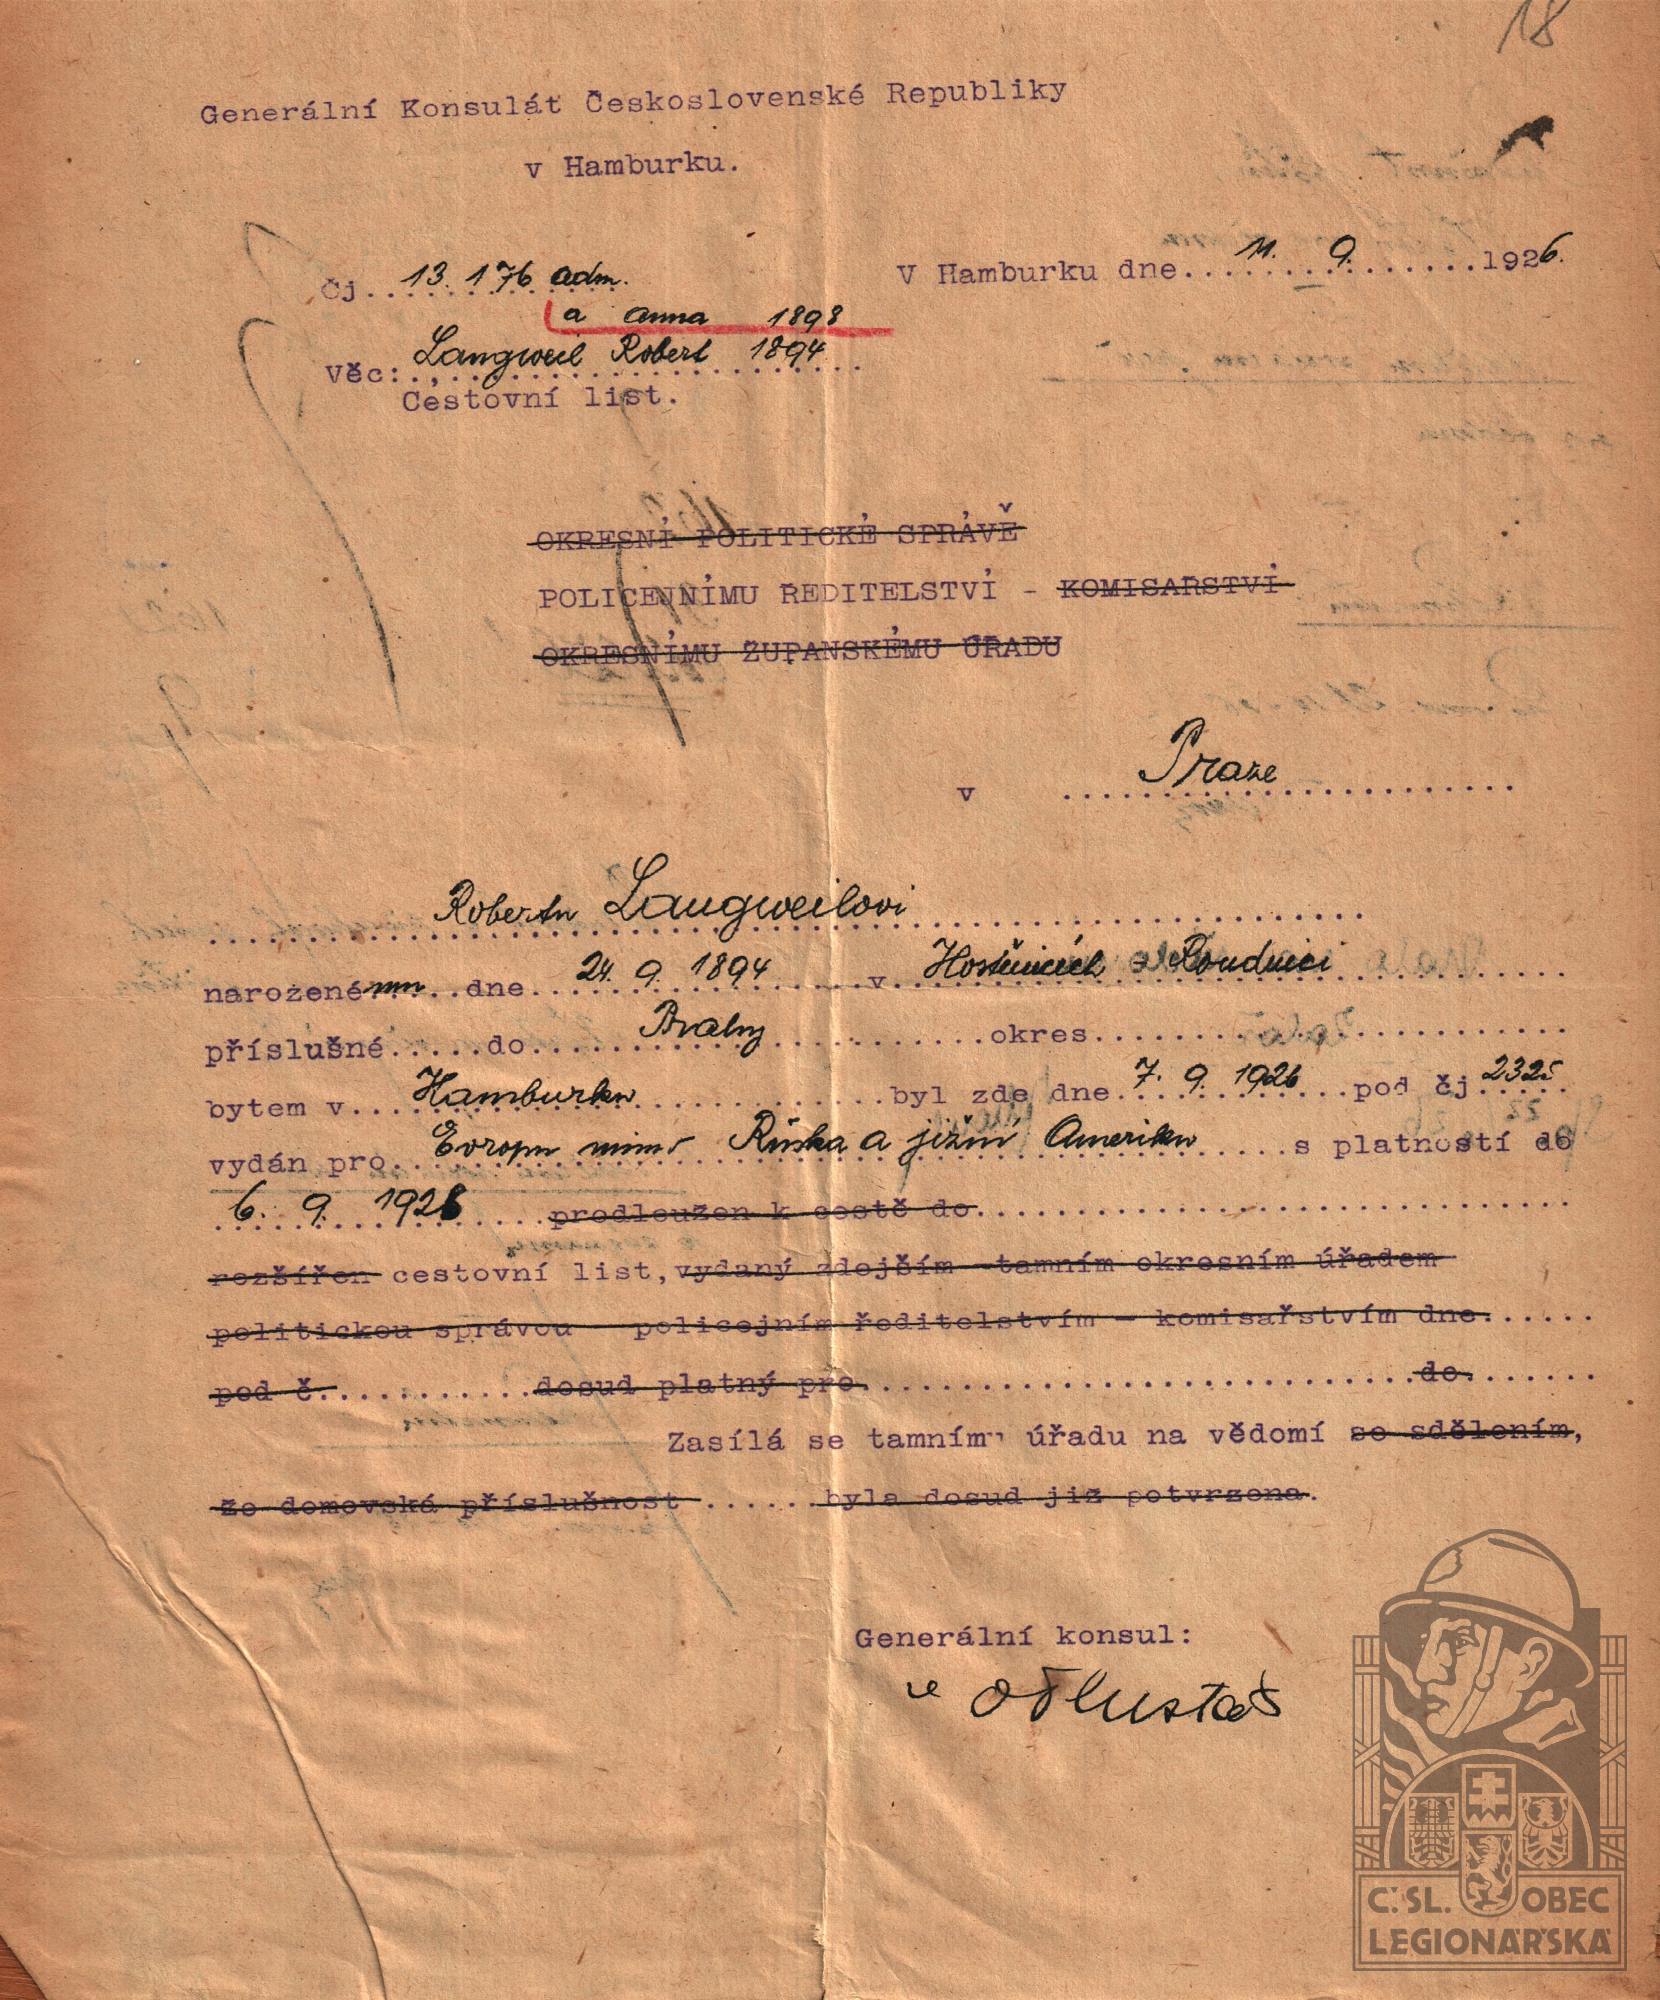 18
Generální Konsulát Československé Republiky
v Hamburku.
Čj. 13.176 adm.
V Hamburku dne 11. 9. 1926.
a Anna 1898
Věc: Langweil Robert 1894
Cestovní list.
OKRESNÍ POLITICKÉ SPRÁVĚ
POLICEJNÍMU ŘEDITELSTVÍ - KOMISAŘSTVÍ
OKRESNÍMU ŽUPANSKÉMU ÚŘADU
v Praze
Robertu Langweilovi
narozenému dne 24. 9. 1894 v Roudnici
příslušné do Prahy okres
bytem v Hamburku byl zde dne 7. 9. 1926 pod čj 2325
vydán pro Evropu mimo Ruska a jižní Ameriku s platností do
6. 9. 1928 prodloužen k cestě do
rozšířen cestovní list, vydaný zdejším - tamním okresním úřadem
politickou správou - policejním ředitelstvím - komisařstvím dne
pod č. dosud platný pro do
Zasílá se tamnímu úřadu na vědomí se sdělením,
že domovská příslušnost byla dosud již potvrzena.
Generální konsul:
Č.SL. OBEC
LEGIONÁŘSKÁ